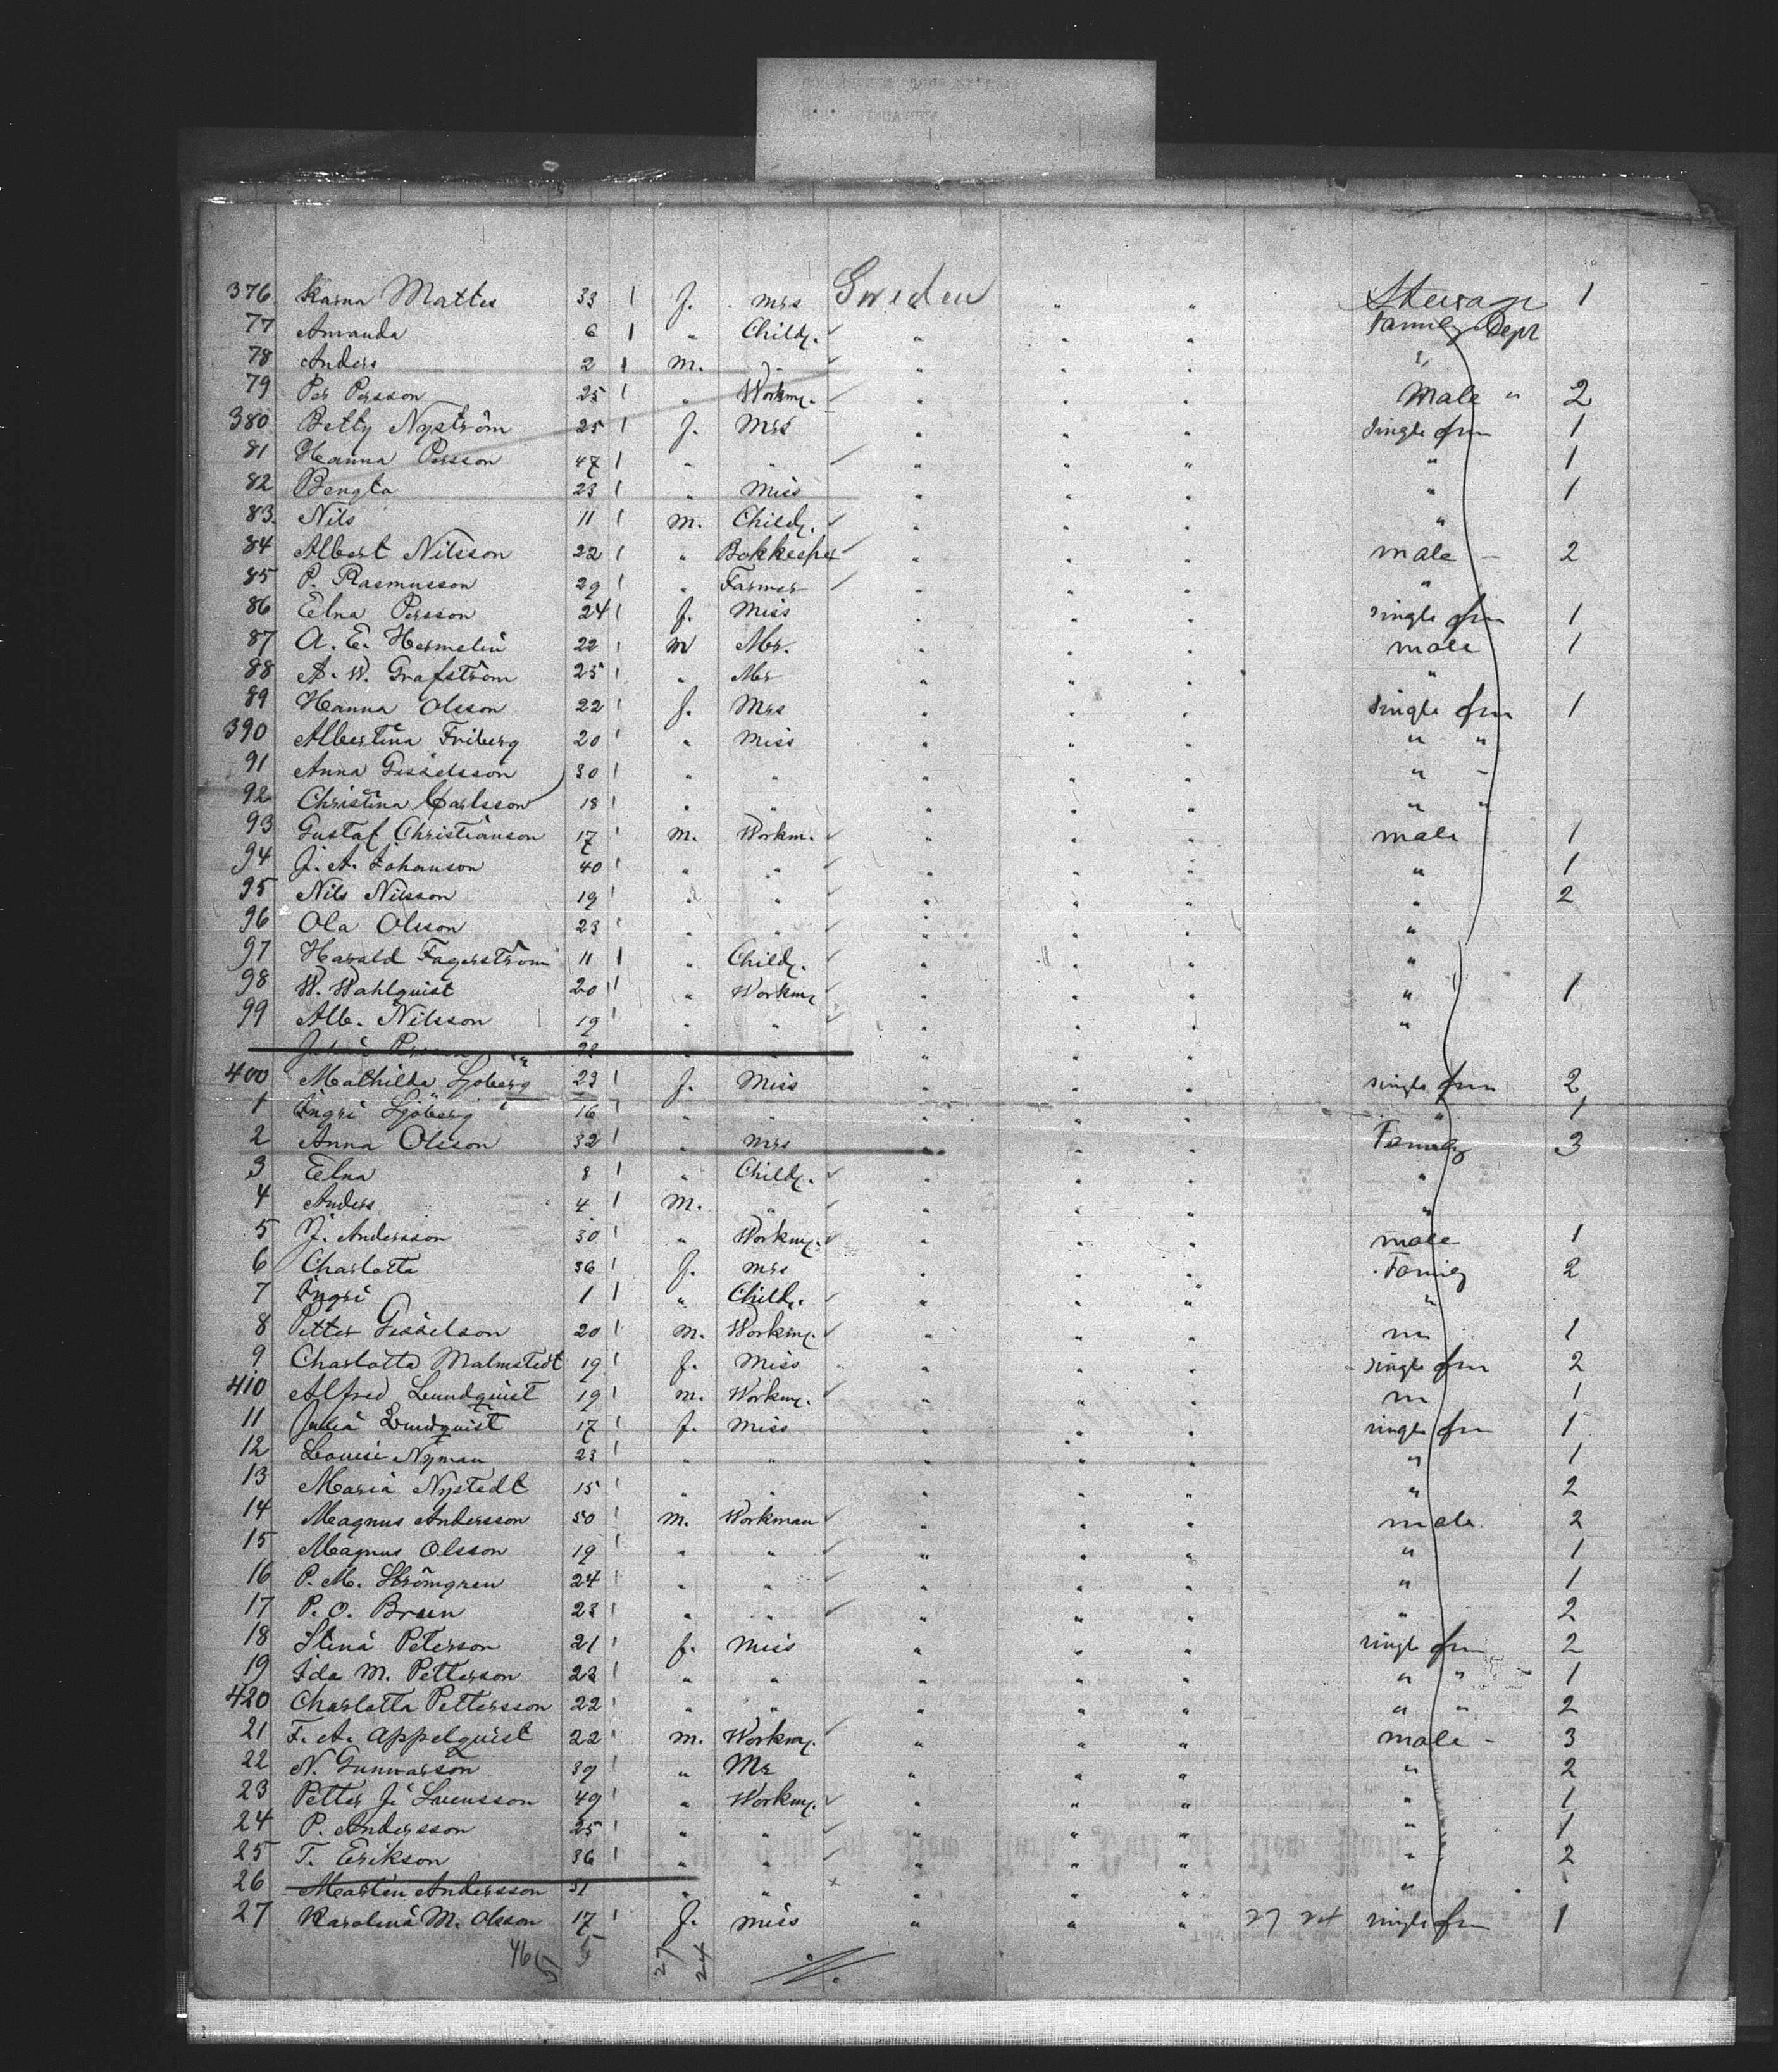 376 Karna Mattes 33 1 f. Mrs Sweden " " Steerage 1
77 Amanda 6 1 " Childr. " " " Family Dept
78 Anders 2 1 m. " " " " "
79 Per Persson 25 1 " Workm. " " " Male " 2
380 Betty Nyström 25 1 f. Mrs " " " single fm 1
81 Hanna Persson 47 1 " " " " " " 1
82 Bengta 23 1 " Miss " " " " 1
83. Nils 11 1 m. Childr. " " " "
84 Albert Nilsson 22 1 " Bokkeeper " " " male - 2
85 P. Rasmusson 29 1 " Farmer " " " "
86 Elna Persson 24 1 f. Miss " " " single fm 1
87 A. E. Hermelin 22 1 m Mr. " " " male 1
88 A. W. Grafström 25 1 " Mr " " " "
89 Hanna Olsson 22 1 f. Mrs " " " single fm 1
390 Albertina Friberg 20 1 " Miss " " " " "
91 Anna Gisselsson 30 1 " " " " " " -
92 Christina Carlsson 18 1 " " " " " " "
93 Gustaf Christianson 17 1 m. Workm. " " " male 1
94 J. A. Johanson 40 1 " " " " " " 1
95 Nils Nilsson 19 1 " " " " " " 2
96 Ola Olsson 23 1 " " " " " "
97 Harald Fagerström 11 1 " Childr. " " " "
98 W. Wahlquist 20 1 " Workm. " " " " 1
99 Alb. Nilsson 19 1 " " " " " "
" " " " "
400 Mathilda Sjöberg 23 1 f. Miss " " " single fm 2
1 Ingri Sjöberg 16 1 " " " " " " 1
2 Anna Olsson 32 1 " Mrs " " " Family 3
3 Elna 8 1 " Childr. " " " "
4 Anders 4 1 m. " " " " "
5 J. Andersson 30 1 " Workm. " " " male 1
6 Charlotta 36 1 f. Mrs " " " Family 2
7 Ingri 1 1 " Childr. " " " "
8 Petter Gisselson 20 1 m. Workm. " " " m 1
9 Charlotta Malmstedt 19 1 f. Miss " " " single fm 2
410 Alfred Lundquist 19 1 m. Workm. " " " m 1
11 Julia Lundquist 17 1 f. Miss " " " single fm 1
12 Louise Nyman 23 1 " " " " " " 1
13 Maria Nystedt 15 1 " " " " " " 2
14 Magnus Andersson 50 1 m. Workman " " " male 2
15 Magnus Olsson 19 1 " " " " " " 1
16 P. M. Strömgren 24 1 " " " " " " 1
17 P. O. Bruin 23 1 " " " " " " 2
18 Stina Peterson 21 1 f. Miss " " " single fm 2
19 Ida M. Petterson 22 1 " " " " " " " 1
420 Charlotta Pettersson 22 1 " " " " " " " 2
21 F. A. Appelquist 22 1 m. Workm. " " " male - 3
22 N. Gunnarson 39 1 " Mr " " " " 2
23 Petter J. Svensson 49 1 " Workm. " " " " 1
24 P. Andersson 25 1 " " " " " " 1
25 T. Erikson 36 1 " " " " " " 2
26 Martin Andersson 51 " " x " " " "
27 Karolina M. Olsson 17 1 f. Miss " " " 27 24 single fm 1
46 5 27 24